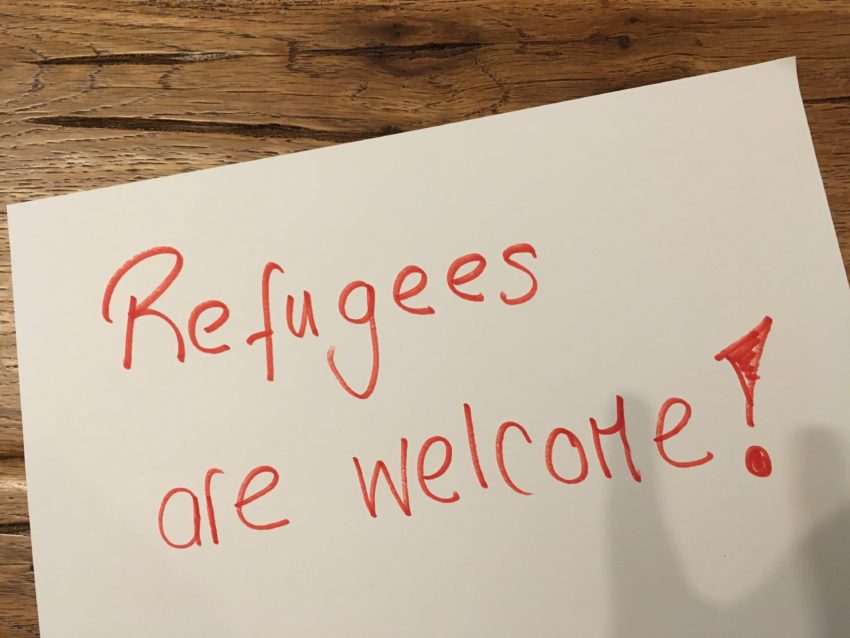 Refugees
are welcome!